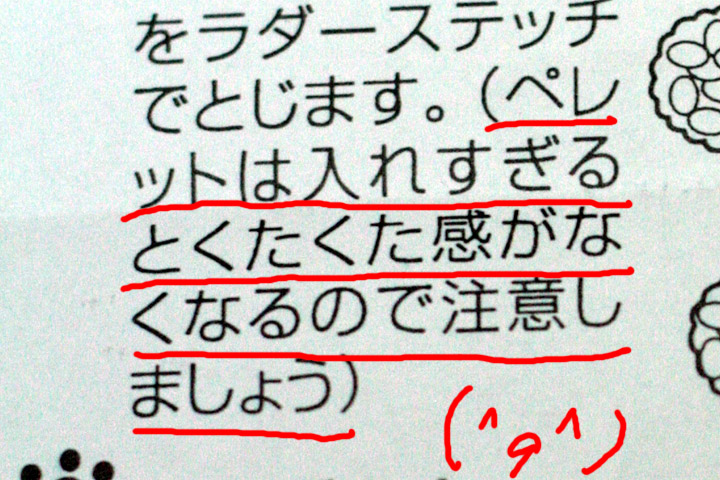 をラダーステッチ
でとじます。(ペレ
ットは入れすぎる
とくたくた感がな
くなるので注意し
ましょう)